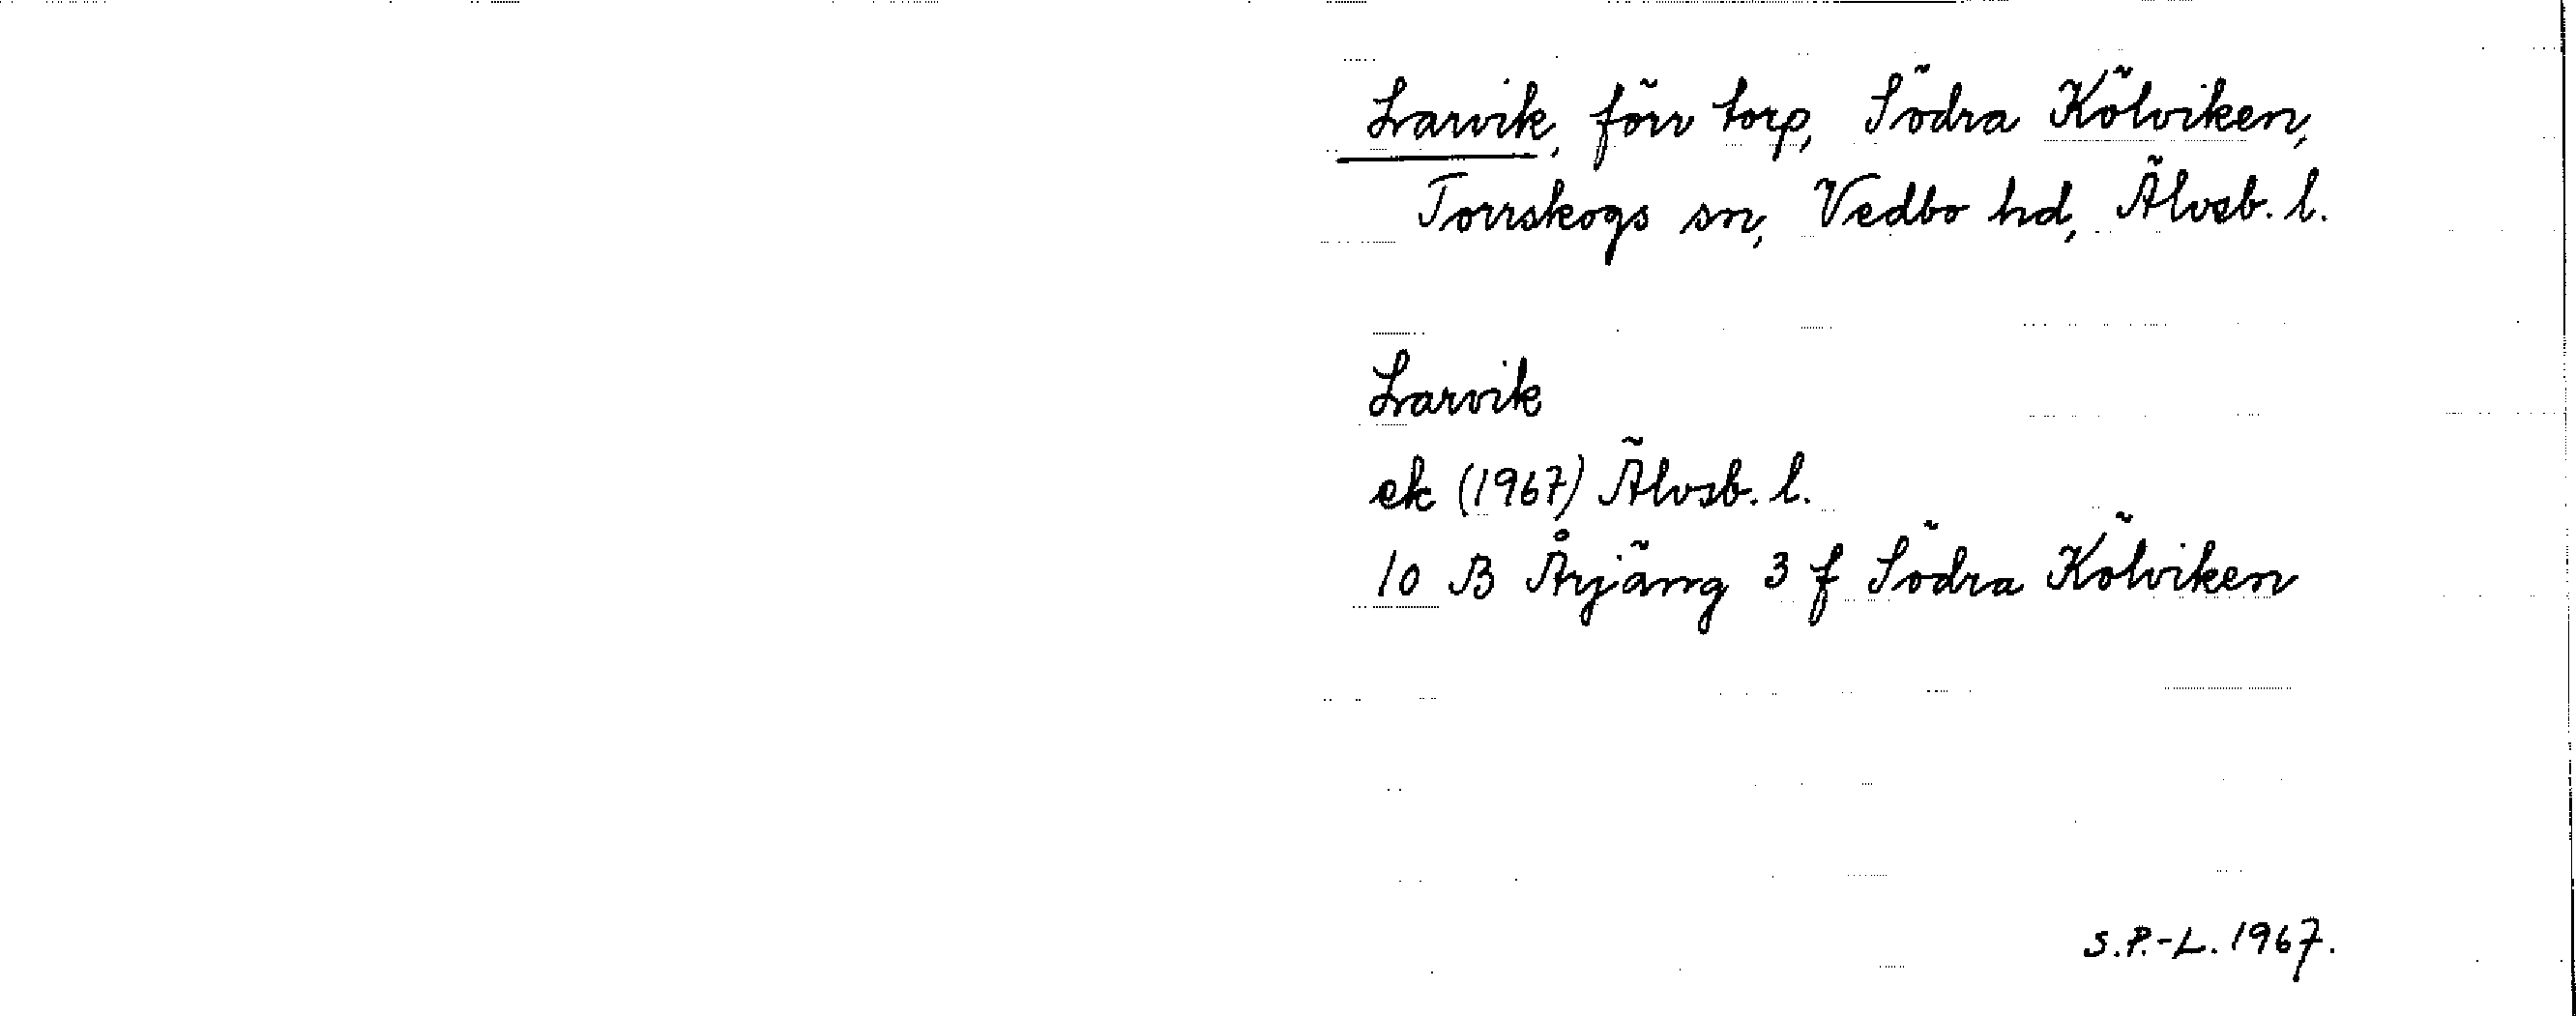 Larvik, förv torp, Södra Kölviken,
Torrskogs sn, Vedbo hd, Älvsb. l.
Larvik
ek (1967) Älvsb. l.
10 B Årjäng 3 f Södra Kölviken
S.P.-L. 1967.